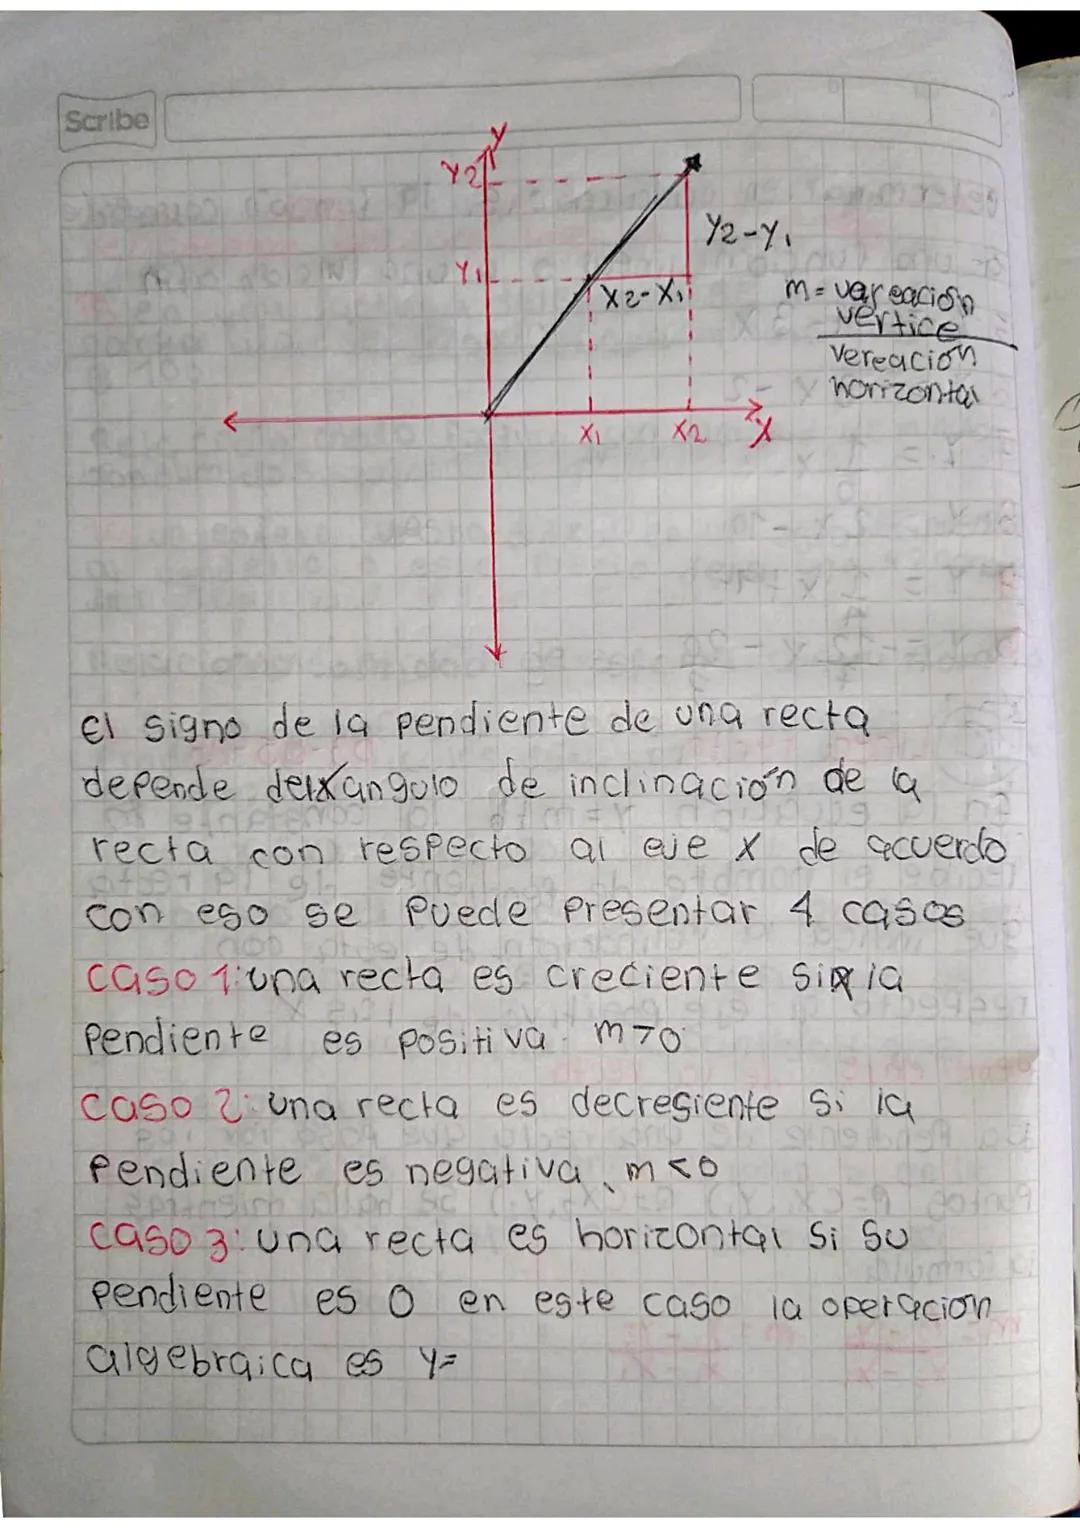 Scribe
Y
Y2
Y2-Y1
Y1
X2-X1
m= vareación
vertice
vereación
horizontal
X1 X2 X
El signo de la pendiente de una recta
depende del angulo de inclinación de la
recta con respecto al eje x de acuerdo
con eso se puede presentar 4 casos
caso 1: una recta es creciente si la
pendiente es positiva m>0
caso 2: una recta es decresiente si la
pendiente es negativa, m<0
caso 3: una recta es horizontal si su
pendiente es 0 en este caso la operación
algebraica es y=